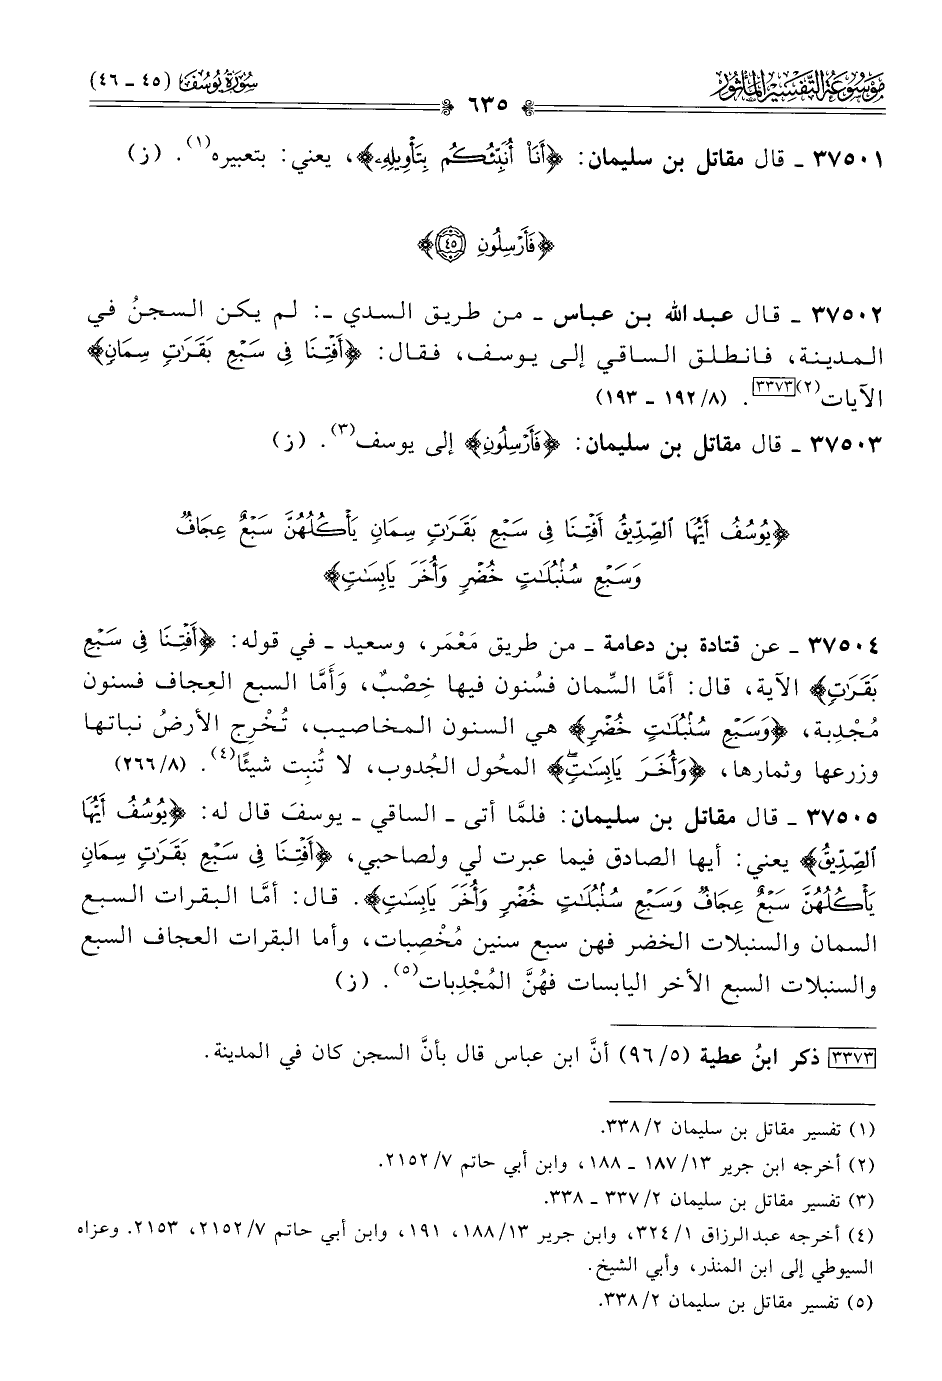 موسوعة التفسير المأثور
سورة يوسف (٤٥ - ٤٦)
٦٣٥
٣٧٥٠١ - قال مقاتل بن سليمان: ﴿أَنَا۠ أُنَبِّئُكُم بِتَأْوِيلِهِۦ﴾، يعني: بتعبيره(١). (ز)
﴿فَأَرْسِلُونِ ٤٥﴾
٣٧٥٠٢ - قال عبدالله بن عباس - من طريق السدي -: لم يكن السجنُ في
المدينة، فانطلق الساقي إلى يوسف، فقال: ﴿أَفْتِنَا فِى سَبْعِ بَقَرَٰتٍ سِمَانٍ﴾
الآيات(٢)[٣٣٧٣]. (١٩٢/٨ - ١٩٣)
٣٧٥٠٣ - قال مقاتل بن سليمان: ﴿فَأَرْسِلُونِ﴾ إلى يوسف(٣). (ز)
﴿يُوسُفُ أَيُّهَا ٱلصِّدِّيقُ أَفْتِنَا فِى سَبْعِ بَقَرَٰتٍ سِمَانٍ يَأْكُلُهُنَّ سَبْعٌ عِجَافٌ
وَسَبْعِ سُنۢبُلَٰتٍ خُضْرٍ وَأُخَرَ يَابِسَٰتٍ﴾
٣٧٥٠٤ - عن قتادة بن دعامة - من طريق مَعْمَر، وسعيد - في قوله: ﴿أَفْتِنَا فِى سَبْعِ
بَقَرَٰتٍ﴾ الآية، قال: أمَّا السِّمان فسُنون فيها خِصْبٌ، وَأَمَّا السبع العِجاف فسنون
مُجْدِبة، ﴿وَسَبْعِ سُنۢبُلَٰتٍ خُضْرٍ﴾ هي السنون المخاصيب، تُخْرِج الأرضُ نباتها
وزرعها وثمارها، ﴿وَأُخَرَ يَابِسَٰتٍ﴾ المحُول الجُدوب، لا تُنبِت شيئًا(٤). (٢٦٦/٨)
٣٧٥٠٥ - قال مقاتل بن سليمان: فلمَّا أتى - الساقي - يوسفَ قال له: ﴿يُوسُفُ أَيُّهَا
ٱلصِّدِّيقُ﴾ يعني: أيها الصادق فيما عبرت لي ولصاحبي، ﴿أَفْتِنَا فِى سَبْعِ بَقَرَٰتٍ سِمَانٍ
يَأْكُلُهُنَّ سَبْعٌ عِجَافٌ وَسَبْعِ سُنۢبُلَٰتٍ خُضْرٍ وَأُخَرَ يَابِسَٰتٍ﴾. قال: أمَّا البقرات السبع
السمان والسنبلات الخضر فهن سبع سنين مُخْصِبات، وأما البقرات العجاف السبع
والسنبلات السبع الأخر اليابسات فهُنَّ المُجْدِبات(٥). (ز)
[٣٣٧٣] ذكر ابنُ عطية (٩٦/٥) أنَّ ابن عباس قال بأنَّ السجن كان في المدينة.
(١) تفسير مقاتل بن سليمان ٣٣٨/٢.
(٢) أخرجه ابن جرير ١٨٧/١٣ - ١٨٨، وابن أبي حاتم ٢١٥٢/٧.
(٣) تفسير مقاتل بن سليمان ٣٣٧/٢ - ٣٣٨.
(٤) أخرجه عبدالرزاق ٣٢٤/١، وابن جرير ١٨٨/١٣، ١٩١، وابن أبي حاتم ٢١٥٢/٧، ٢١٥٣. وعزاه
السيوطي إلى ابن المنذر، وأبي الشيخ.
(٥) تفسير مقاتل بن سليمان ٣٣٨/٢.